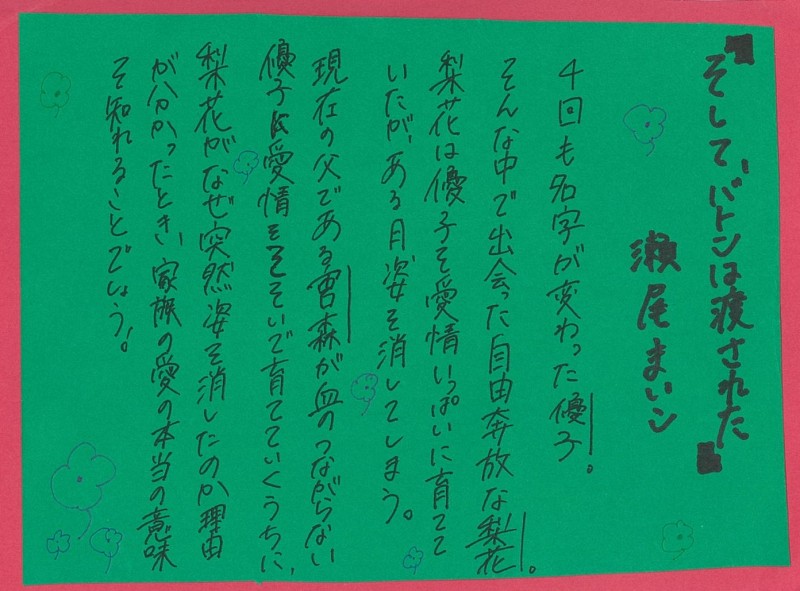 『そして、バトンは渡された』
瀬尾まいこ
4回も名字が変わった優子。
そんな中で出会った自由奔放な梨花。
梨花は優子を愛情いっぱいに育てて
いたが、ある日姿を消してしまう。
現在の父である森が血のつながらない
優子に愛情をそそいで育てていくうちに、
梨花がなぜ突然姿を消したのか理由
が分かったとき、家族の愛の本当の意味
を知れることでしょう!。